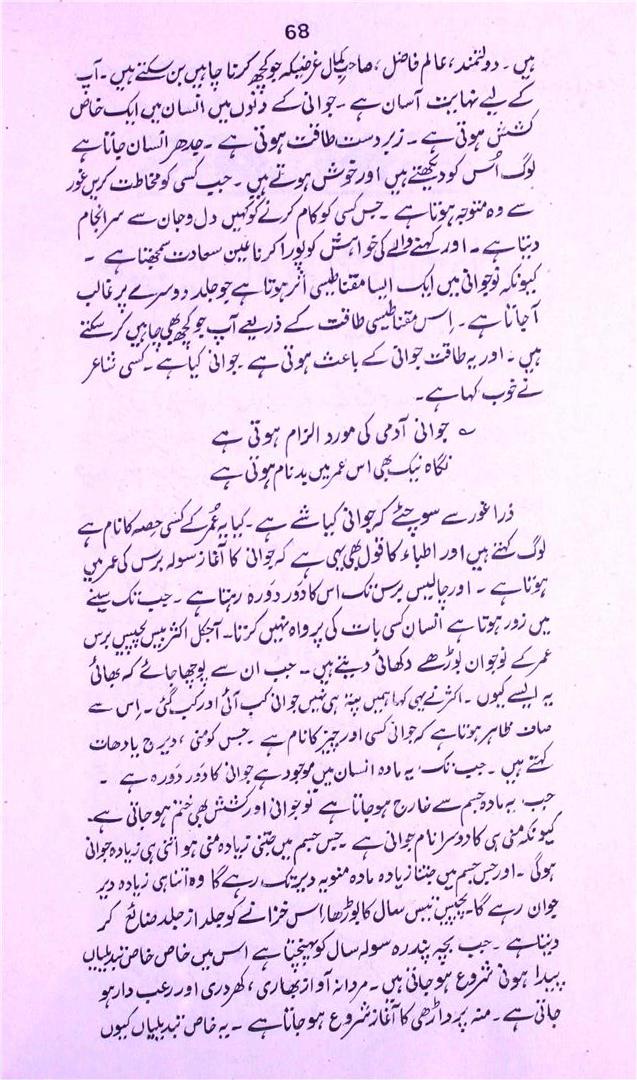 68
ہیں۔ دولتمند، عالم فاضل، صاحبِ کمال غرضیکہ جو کچھ کرنا چاہیں بن سکتے ہیں۔ آپ
کے لیے نہایت آسان ہے۔ جوانی کے دنوں میں انسان میں ایک خاص
کشش ہوتی ہے۔ زبردست طاقت ہوتی ہے۔ جدھر انسان جاتا ہے
لوگ اُس کو دیکھتے ہیں اور خوش ہوتے ہیں۔ جب کسی کو مخاطب کریں غور
سے وہ متوجہ ہوتا ہے۔ جس کسی کو کام کرنے کو کہیں دل و جان سے سرانجام
دیتا ہے۔ اور کہنے والے کی خواہش کو پورا کرنا عین سعادت سمجھتا ہے۔
کیونکہ نوجوانی میں ایک ایسا مقناطیسی اثر ہوتا ہے جو جلد دوسرے پر غالب
آ جاتا ہے۔ اِس مقناطیسی طاقت کے ذریعے آپ جو کچھ بھی چاہیں کر سکتے
ہیں۔ اور یہ طاقت جوانی کے باعث ہوتی ہے جوانی کیا ہے۔ کسی شاعر
نے خوب کہا ہے۔
؎ جوانی آدمی کی مورد الزام ہوتی ہے
نگاہ نیک بھی اس عمر میں بدنام ہوتی ہے
ذرا غور سے سوچئے کہ جوانی کیا شے ہے۔ کیا یہ عُمر کے کسی حِصہ کا نام ہے
لوگ کہتے ہیں اور اطباء کا قول بھی یہی ہے کہ جوانی کا آغاز سولہ برس کی عمر میں
ہوتا ہے۔ اور چالیس برس تک اس کا دَور دَورہ رہتا ہے۔ جب تک سینے
میں زور ہوتا ہے انسان کسی بات کی پرواہ نہیں کرتا۔ آجکل اکثر بیس پچیس برس
عمر کے نوجوان بوڑھے دکھائی دیتے ہیں۔ جب ان سے پوچھا جائے کہ بھائی
یہ ایسے کیوں۔ اکثر نے یہی کہا ہمیں پتہ ہی نہیں جوانی کب آئی اور کب گئی۔ اِس سے
صاف ظاہر ہوتا ہے کہ جوانی کسی اور چیز کا نام ہے۔ جس کو منی، ویرج یا دھات
کہتے ہیں۔ جب تک یہ مادہ انسان میں موجود ہے جوانی کا دَور دَورہ ہے۔
جب یہ مادہ جسم سے خارج ہو جاتا ہے تو جوانی اور کشش بھی ختم ہو جاتی ہے۔
کیونکہ منی ہی کا دوسرا نام جوانی ہے۔ جس جسم میں جتنی زیادہ منی ہو اتنی ہی زیادہ جوانی
ہوگی۔ اور جس جسم میں جتنا زیادہ مادہ منویہ دیر تک رہے گا وہ اتنا ہی زیادہ دیر
جوان رہے گا۔ پچیس تیس سال کا بوڑھا اِس خزانے کو جلد از جلد ضائع کر
دیتا ہے۔ جب بچہ پندرہ سولہ سال کو پہنچتا ہے اس میں خاص خاص تبدیلیاں
پیدا ہونی شروع ہو جاتی ہیں۔ مردانہ آواز بھاری، کھردری اور رعب دار ہو
جاتی ہے۔ منہ پر داڑھی کا آغاز شروع ہو جاتا ہے۔ یہ خاص تبدیلیاں کیوں